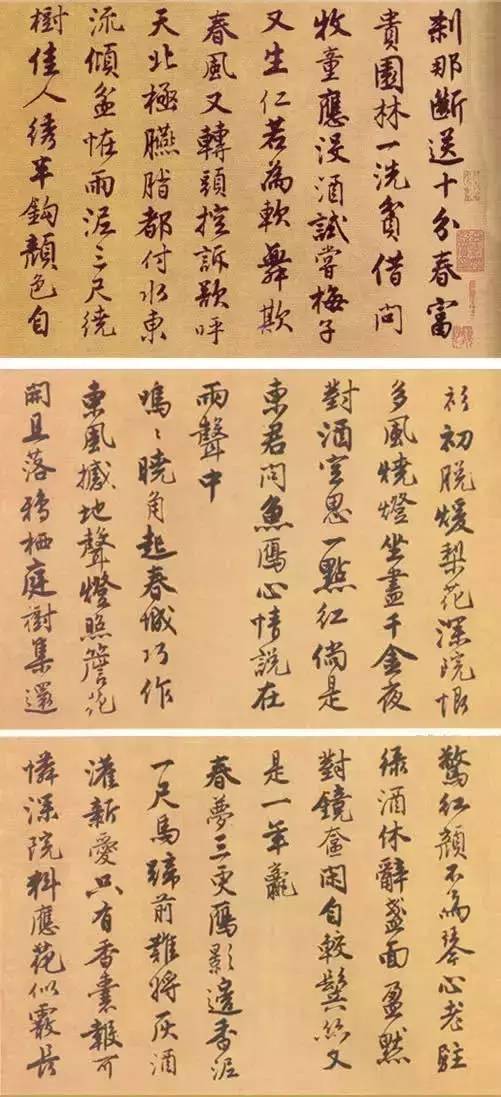 刹那斷送十分春富
貴園林一洗貧借問
牧童應沒酒試嘗梅子
又生仁若為軟舞欺
春風又轉頭控訴歌呼
天北極臙脂都付水東
流傾盆怪雨泥三尺繞
樹佳人綉半鈎顏色自
衫初脫煖梨花深院恨
多風燒燈坐盡千金夜
對酒空思一點紅倘是
東君問魚鴈心情說在
雨聲中
嗚々曉角起春城巧作
東風撼地聲燈照簷花
開且落鴉栖庭樹集還
驚紅顏不為琴心老駐
綠酒休辭盞面盈默
對鏡奩閑自較鬢絲又
是一年虧
春夢三更鴈影邊香泥
一尺馬蹄前難將灰酒
灌新愛只有香囊報可
憐深院料應花似霰長